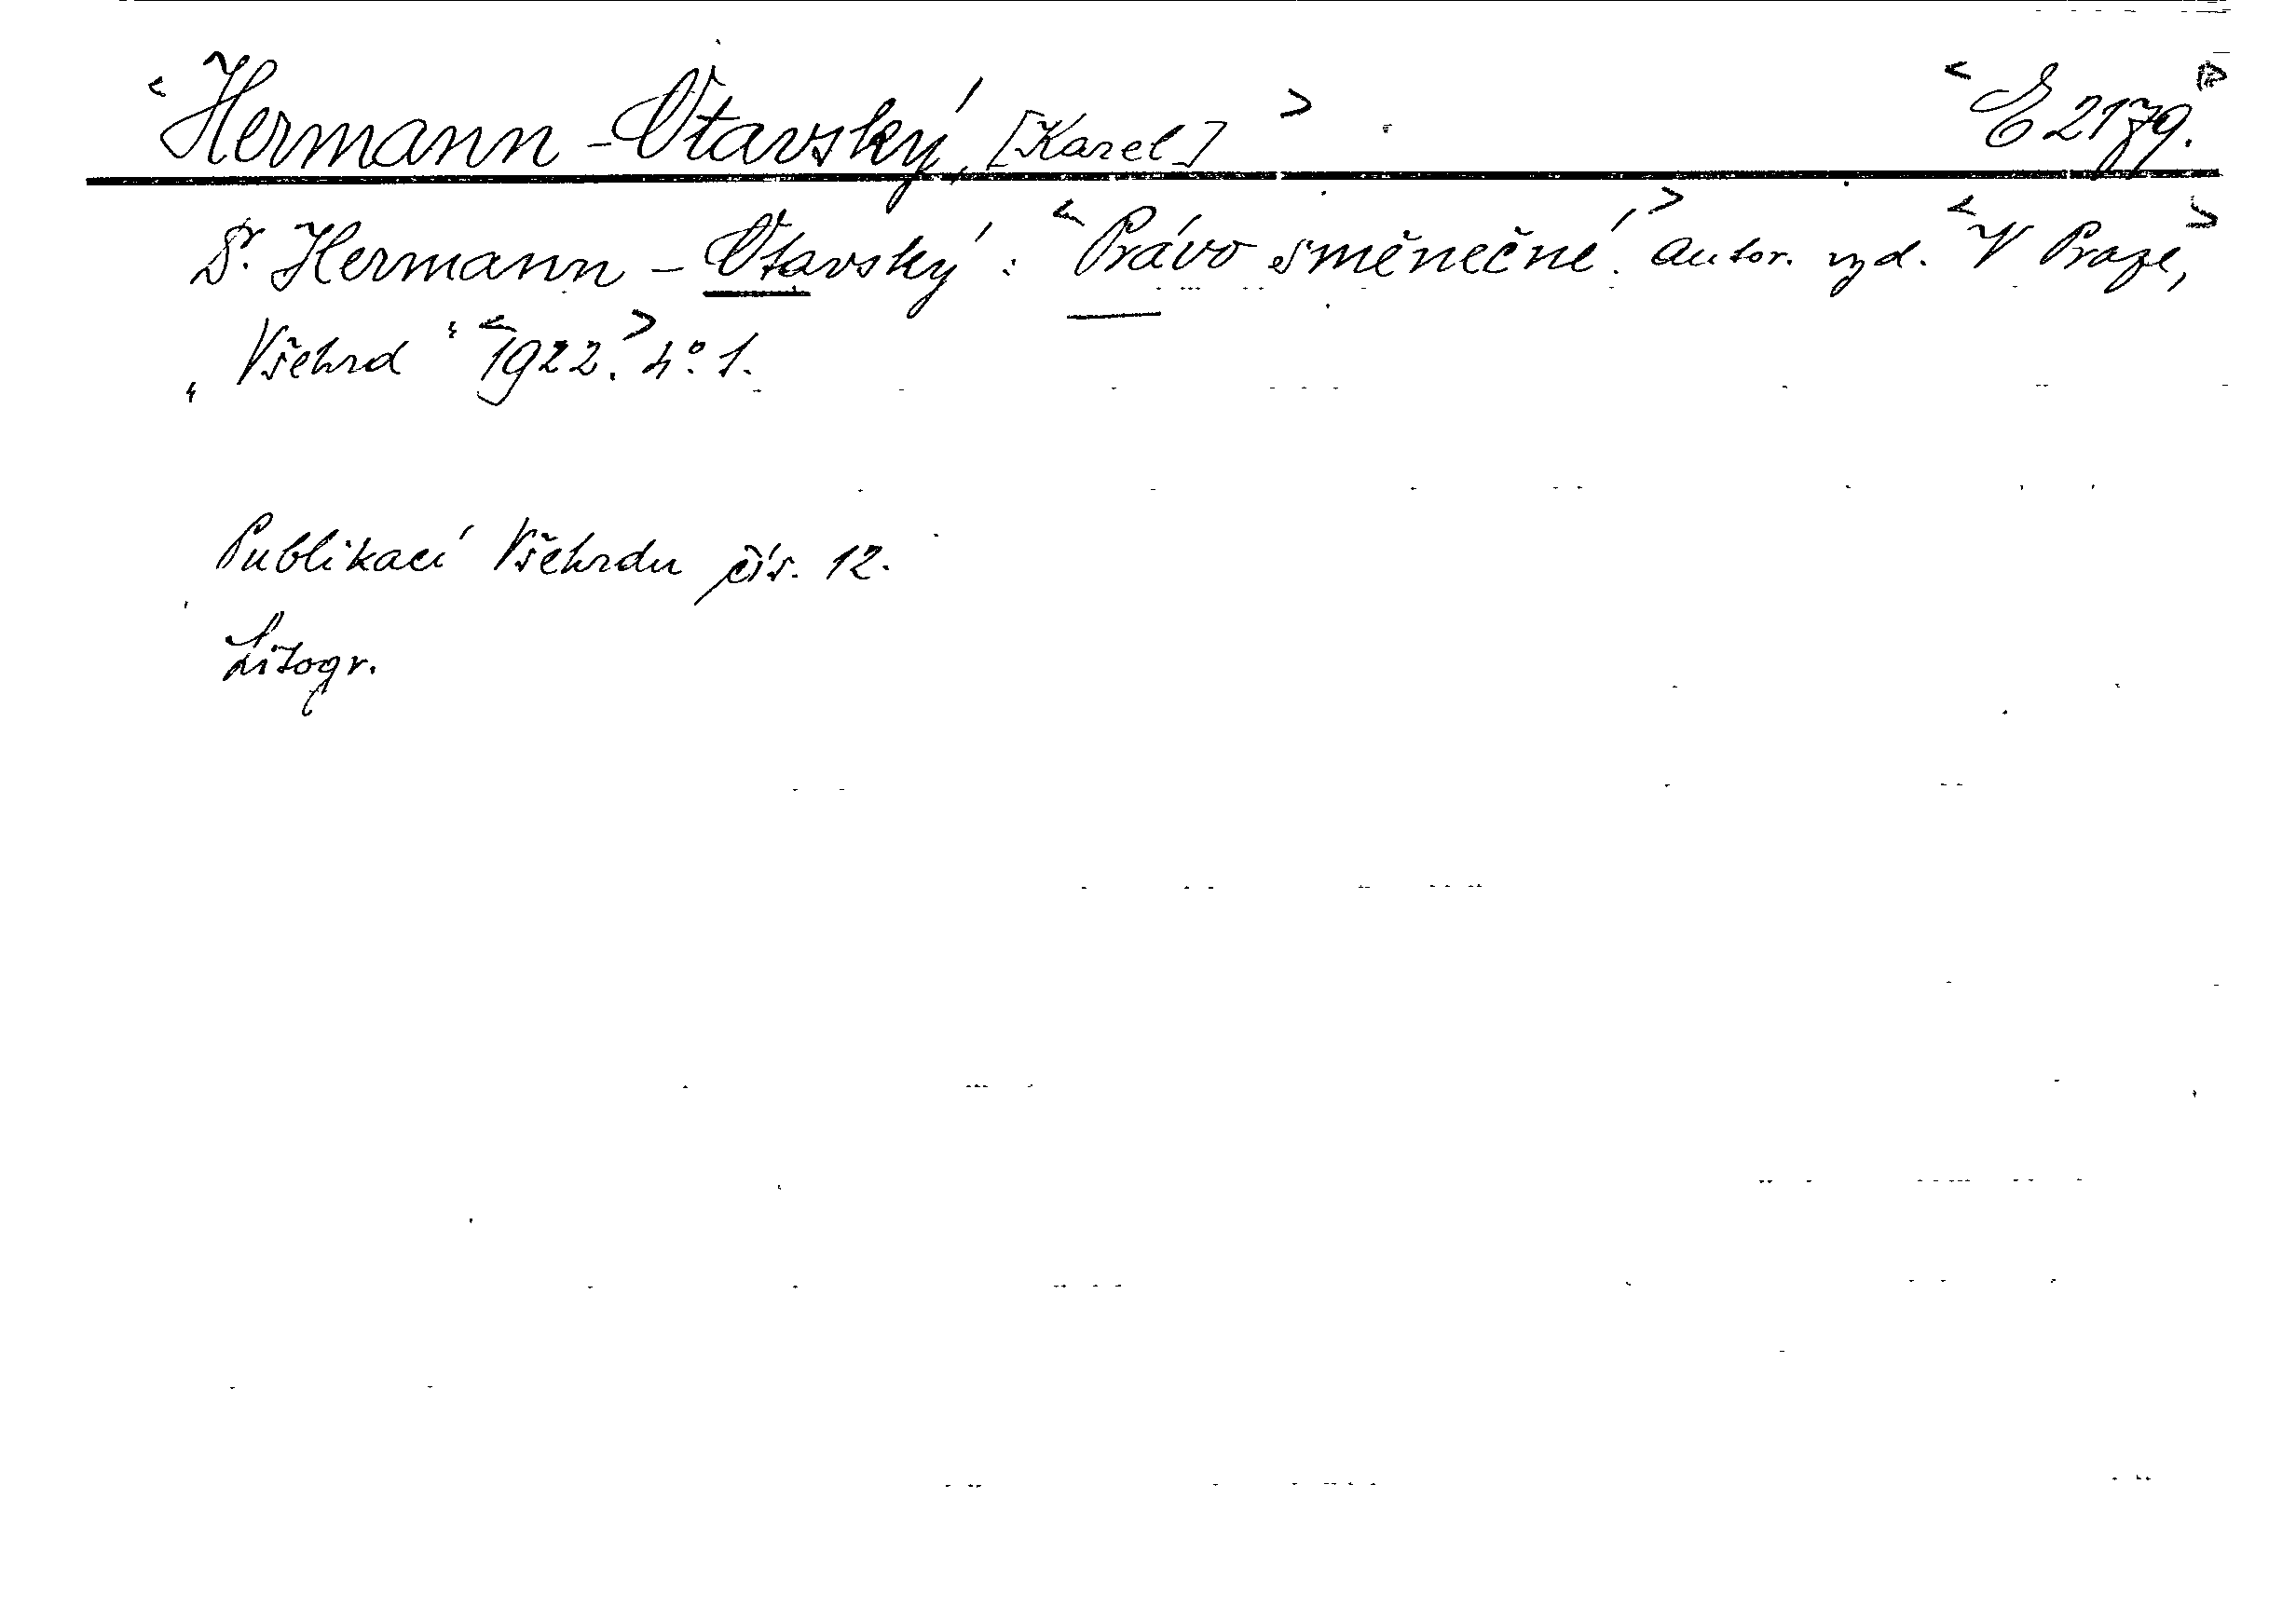 <Hermann-Otavský, [Karel]> <E 2179.>
Dr. Hermann-Otavský: <Právo směnečné.> autor. vyd. <V Praze,>
„Všehrd“ <1922.> 4° 1.
Publikací Všehrdu čís. 12.
Litogr.